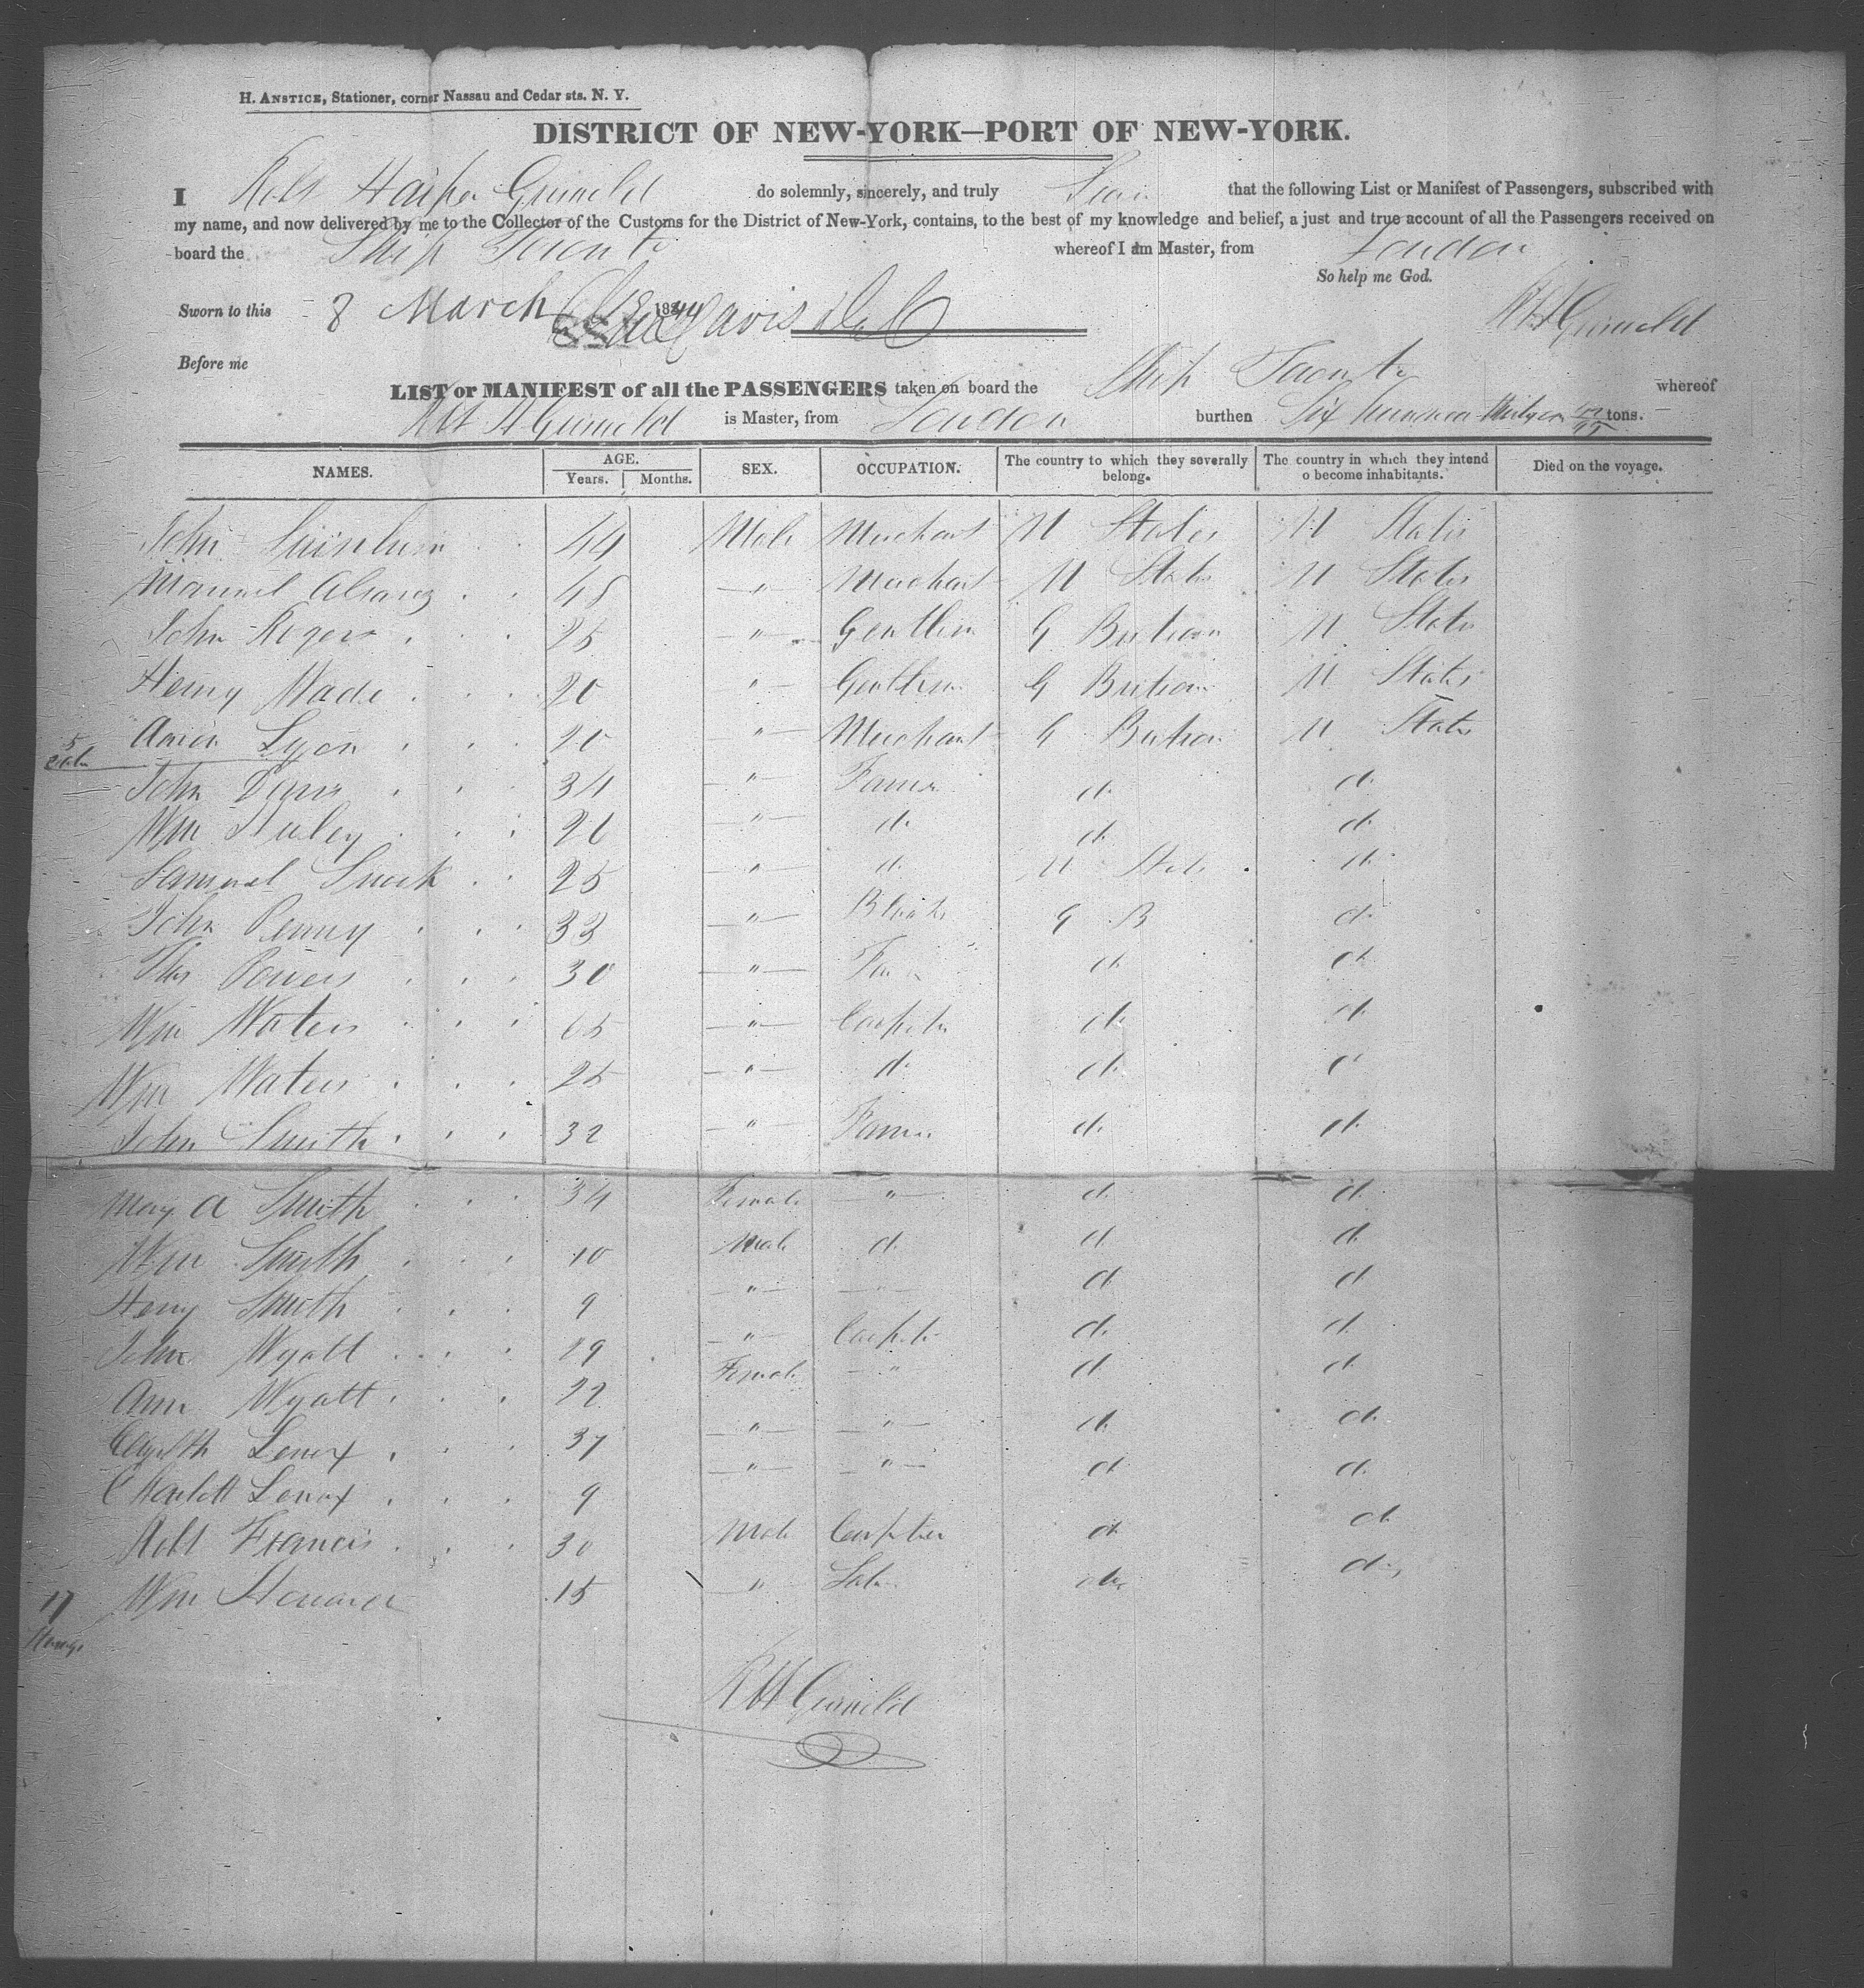 H. ANSTICE, Stationer, corner Nassau and Cedar sts. N. Y.
DISTRICT OF NEW-YORK—PORT OF NEW-YORK.
I Robt do solemnly, sincerely, and truly that the following List or Manifest of Passengers, subscribed with
my name, and now delivered by me to the Collector of the Customs for the District of New-York, contains, to the best of my knowledge and belief, a just and true account of all the Passengers received on
board the Ship Toronto whereof I am Master, from London
So help me God.
Sworn to this 8 March 1844
Before me
LIST or MANIFEST of all the PASSENGERS taken on board the Ship Toronto whereof
is Master, from London burthen Six hundred tons.
NAMES. AGE. SEX. OCCUPATION. The country to which they severally belong. The country in which they intend o become inhabitants. Died on the voyage.
Years. Months.
John 44 Male Merchant U States U States
Manuel 48 " Merchant U States U States
John Rogers 25 " Gentlem G Britain U States
Henry Wade 20 " Gentlem G Britain U States
Lyon 20 " Merchant G Britain U States
5
John Davis 34 " Farmer do do
Wm 26 " do do do
Samuel 25 " do U States do
John Penny 33 " G B do
Thos Powers 30 " do do
Wm Waters 65 " Carpenter do do
Wm Waters 25 " do do do
John Smith 32 " Farmer do do
Mary A Smith 34 Female " do do
Wm Smith 10 Male do do do
Henry Smith 9 " do do
John Wyatt 29 " Carpenter do do
Ann Wyatt 22 Female " do do
Lenox 37 " " do do
Charlott Lenox 9 " " do do
Robt Francis 30 Male Carpenter do do
Wm 15 " do do
17